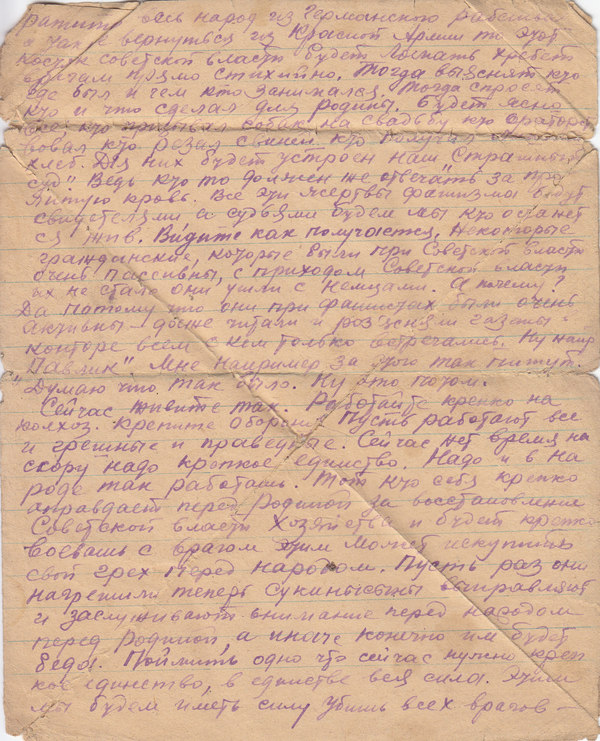 ратит весь народ из Германского рабства
а так е вернутвся из Красной Армии то этот
костяк советской власти будет ломать хребет
врагам прямо стихийно. Тогда выяснят кто
где был и чем кто занимался. Тогда спросят
кто и что сделал для родины. Будет ясно
все, кто призывал собак на свадьбу кто
вовал кто резал свиней кто получал
хлеб. Для них будет устроен наш „Страшный
суд" Ведь кто то должен же отвечать за про
литую кровь. Все эти жертвы фашизма будут
свидетелями а судьями будем мы кто останет
ся жив. Видите как получается, некоторые
гражданские, которые были при Советской власти
очень пассивны, с приходом Советской власти
их не стало они ушли с немцами. А почему?
Да потому что они при фашистах были очень
активны – даже читали и газеты
конторе всем с кем только встречались. Ну наш
Павлик" Мне например за это так пишут.
"Думаю что так было. Ну это потом.
Сейчас живите так. Работайте крепко на
колхоз. Крепите Оборону. Пусть работают все
и грешные и праведные. Сейчас нет время на
ссору надо кропкое единство. Надо и в на
роде так работать. Тот кто себя крепко
оправдает перед Родиной за восстановление
Советской власти Хозяйства и будет крепко
воевать с врагом этим может искупить
свой грех перед народом. Пусть раз они
нагрешили теперь сукинысыны выправляют
и заслуживают внимание перед народом
перед Родиной, а иначе конечно им будет
беда. Поймить одно что сейчас нужно креп
кое единство, в единстве вся сила. Этим
мы будем иметь силу убить всех врагов –